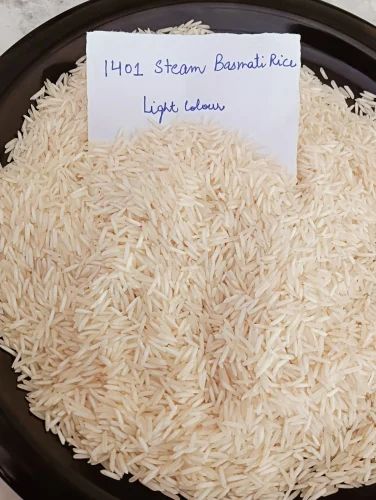 1401 Steam Basmati Rice
Light Colour